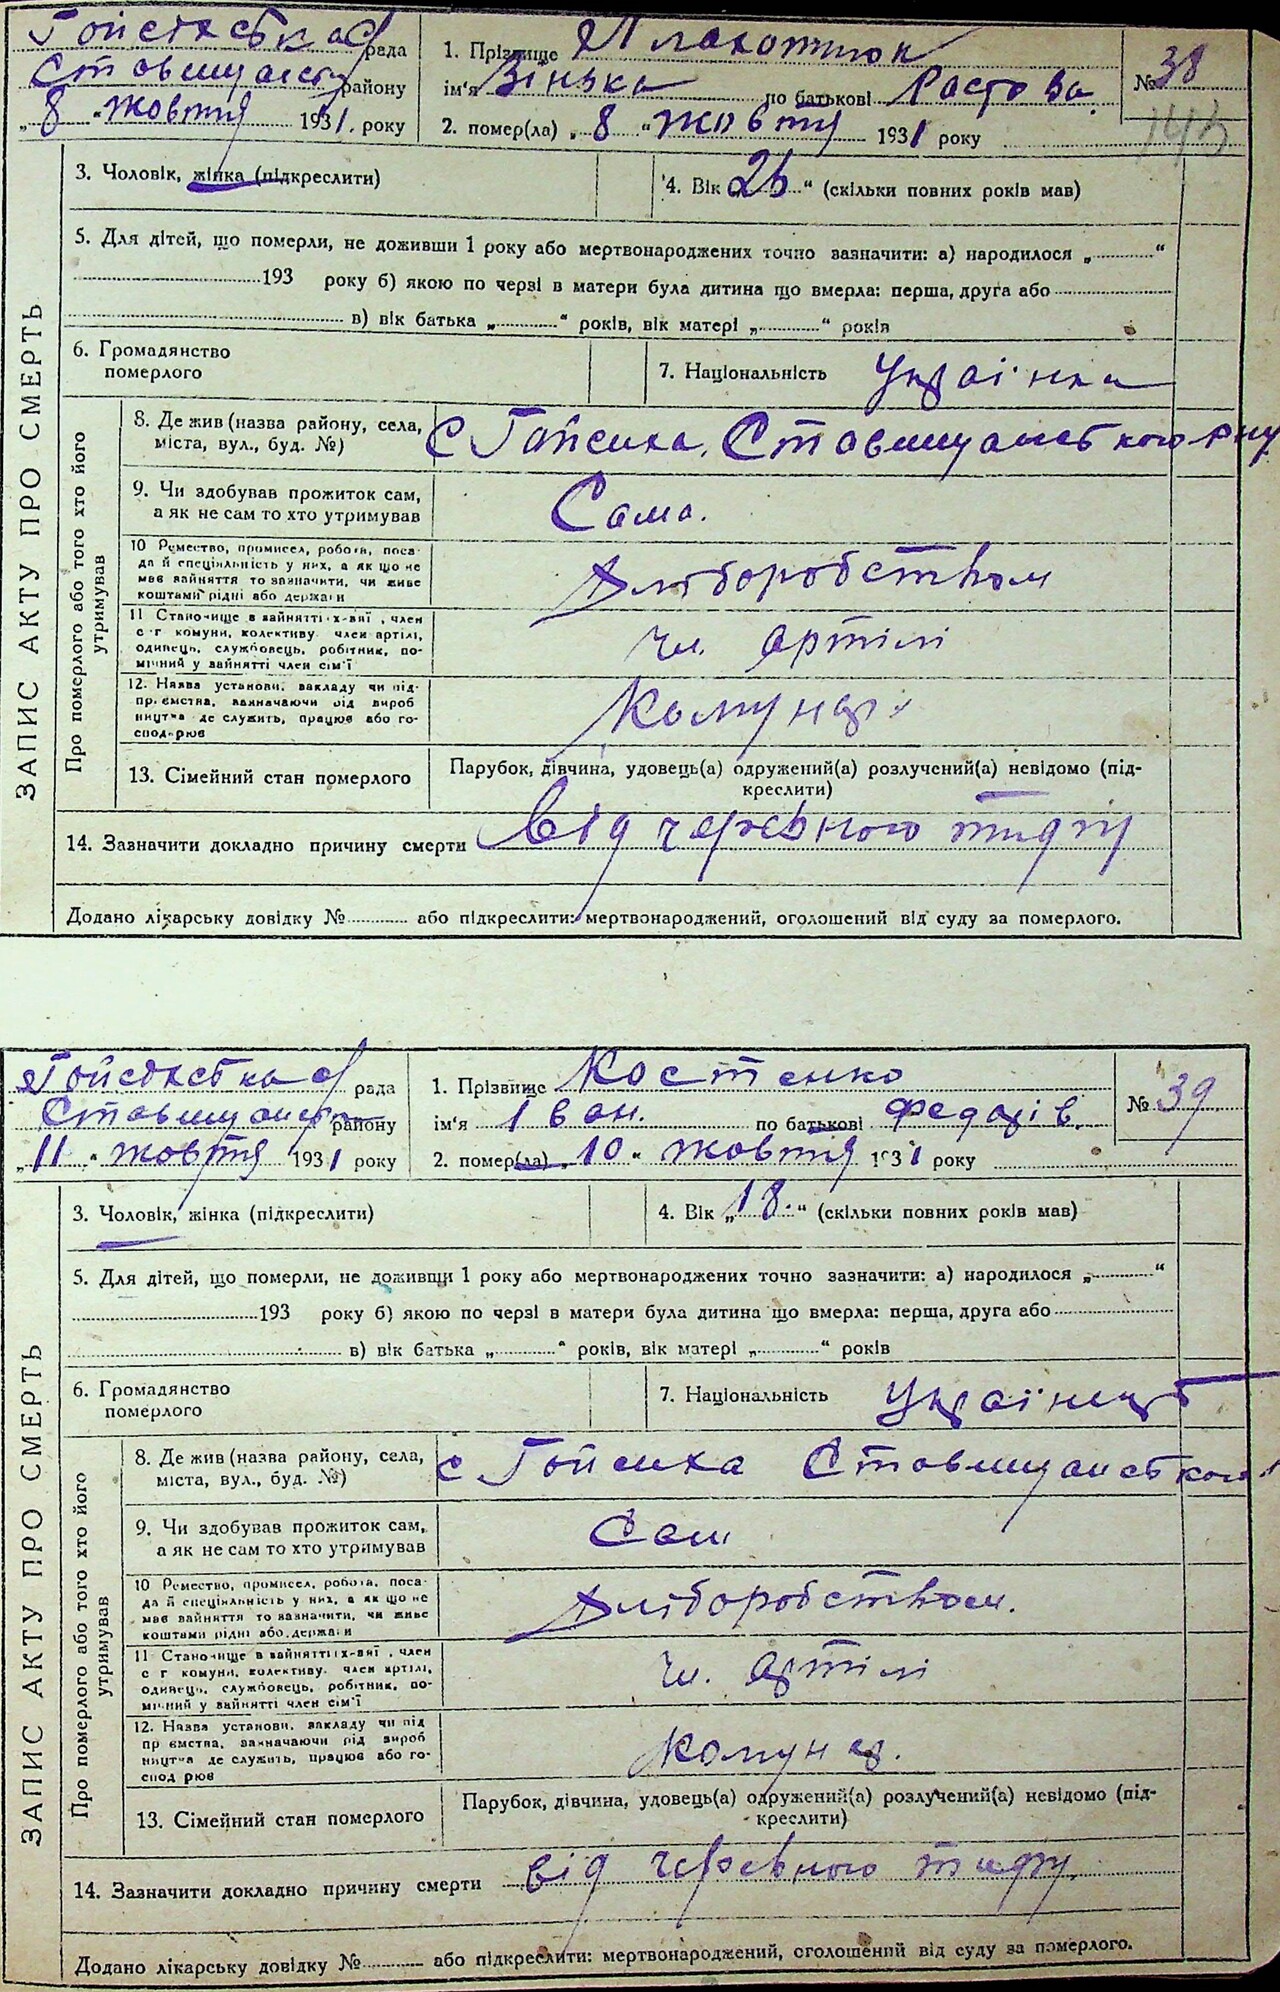 Гойсихська с/рада
Ставищанськ району
„8" жовтня 1931. року
1. Прізвище Плахотнюк
ім'я Зінька по батькові
2. помер(ла) „8" жовтня 1931 року
№ 38
143
ЗАПИС АКТУ ПРО СМЕРТЬ
3. Чоловік, жінка (підкреслити)
4. Вік „26" (скільки повних років мав)
5. Для дітей, що померли, не доживши 1 року або мертвонароджених точно зазначити: а) народилося „............"
193 року б) якою по черзі в матери була дитина що вмерла: перша, друга або
в) вік батька „............" років, вік матері „............" років
6. Громадянство
померлого
7. Національність Українка
Про померлого або того хто його
утримував
8. Де жив (назва району, села,
міста, вул., буд. №)
с Гойсиха. Ставищанського р-ну
9. Чи здобував прожиток сам,
а як не сам то хто утримував
Сама.
10 Ремество, промисел, робота, поса-
да й спеціяльність у них, а як що не
мав зайняття то зазначити, чи живе
коштами рідні або держави
Хліборобством
11 Становище в зайнятті х-вні, член
с-г комуни, колективу. член артілі,
одинець, службовець, робітник, по-
мічний у зайнятті член сім'ї
чл. артілі
12. Назва установи, закладу чи під-
приємства, зазначаючи рід вироб
ництва де служить, працює або го-
сподарює
Комунар
13. Сімейний стан померлого
Парубок, дівчина, удовець(а) одружений(а) розлучений(а) невідомо (під-
креслити)
14. Зазначити докладно причину смерти Від черевного тифу
Додано лікарську довідку №............ або підкреслити: мертвонароджений, оголошений від суду за померлого.
Гойсихська с/рада
Ставищанськ району
„11" жовтня 1931 року
1. Прізвище Костенко
ім'я Іван. по батькові Федорів
2. помер(ла) „10" жовтня 1931 року
№ 39
ЗАПИС АКТУ ПРО СМЕРТЬ
3. Чоловік, жінка (підкреслити)
4. Вік „18." (скільки повних років мав)
5. Для дітей, що померли, не доживши 1 року або мертвонароджених точно зазначити: а) народилося „............"
193 року б) якою по черзі в матери була дитина що вмерла: перша, друга або
в) вік батька „............" років, вік матері „............" років
6. Громадянство
померлого
7. Національність Українець
Про померлого або того хто його
утримував
8. Де жив (назва району, села,
міста, вул., буд. №)
с Гойсиха Ставищанського
9. Чи здобував прожиток сам,
а як не сам то хто утримував
Сам
10 Ремество, промисел, робота, поса-
да й спеціяльність у них, а як що не
мав зайняття то зазначити, чи живе
коштами рідні або держави
Хліборобством.
11 Становище в зайнятті х-вні, член
с г комуни, колективу. член артілі,
одинець, службовець, робітник, по-
мічний у зайнятті член сім'ї
чл. артілі
12. Назва установи, закладу чи під
приємства, зазначаючи рід вироб
ництва де служить, працює або го-
сподарює
Комунар.
13. Сімейний стан померлого
Парубок, дівчина, удовець(а) одружений(а) розлучений(а) невідомо (під-
креслити)
14. Зазначити докладно причину смерти від черевного тифу
Додано лікарську довідку №............ або підкреслити: мертвонароджений, оголошений від суду за померлого.